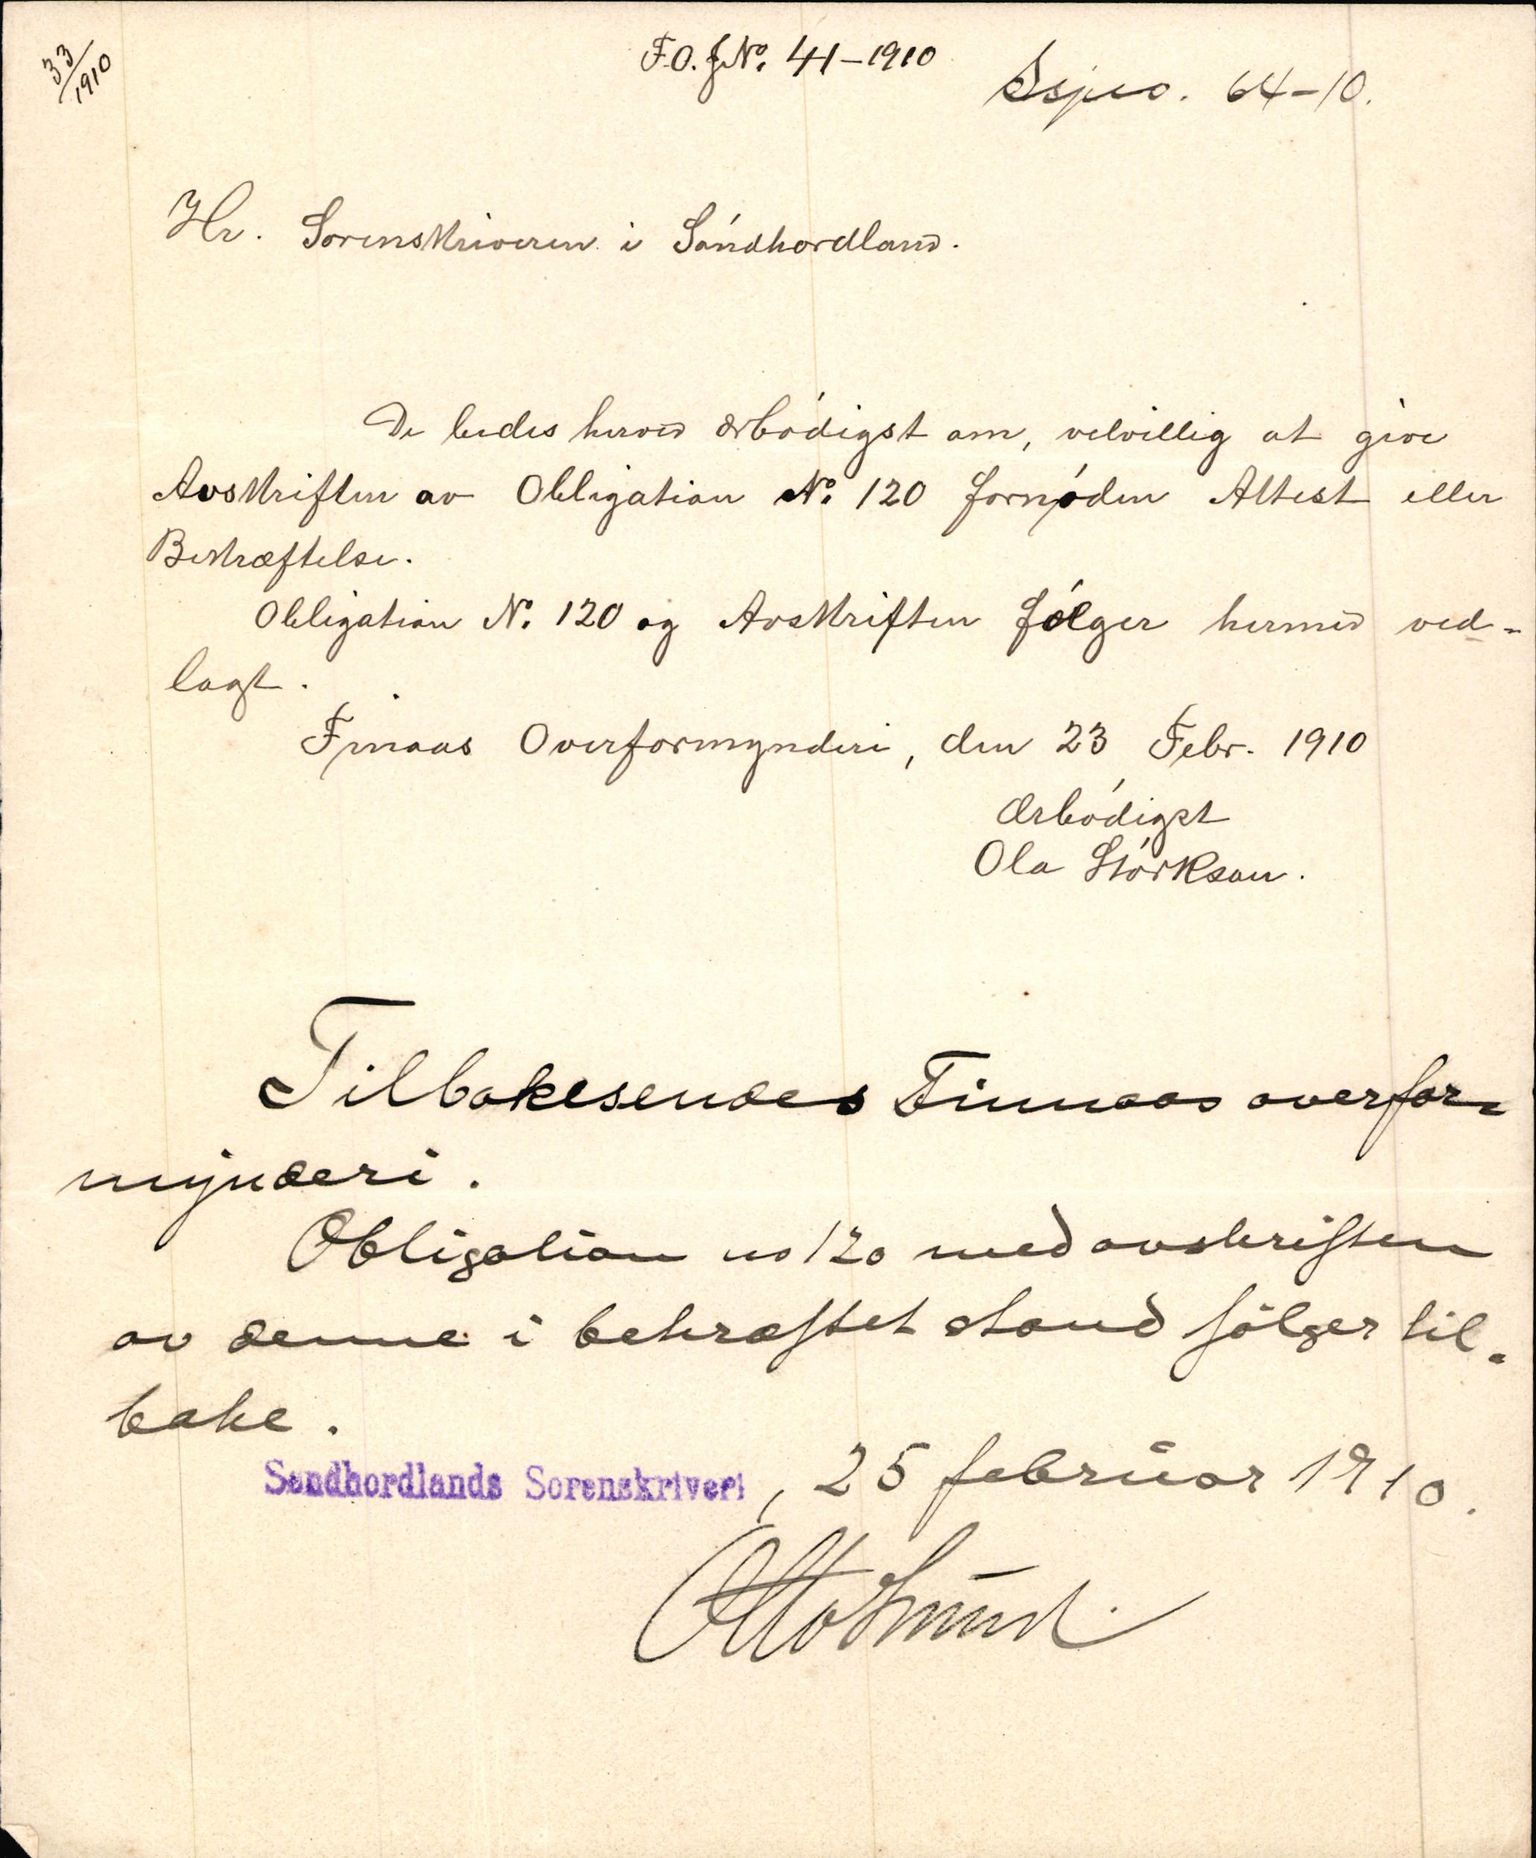 33/1910
F.O.JNº. 41-1910
Ssjno. 64-10.
Hr. Sorenskriveren i Sóndhordland.
De bedes herved ærbódigst om, velvillig at give
Avskriften av Obligation Nº. 120 fornøden Attest eller
Bekræftelse.
Obligation Nº. 120 og Avskriften følger hermed ved-
lagt.
Finaas Overformynderi, den 23 Febr. 1910
Ærbódigst
Ola Stórkson.
Tilbakesendes Finnaas overfor-
mynderi.
Obligation no 120 med avskriften
av denne i bekræftet stand fölger til-
bake.
Søndhordlands Sorenskriveri, 25 februar 1910.
Otto